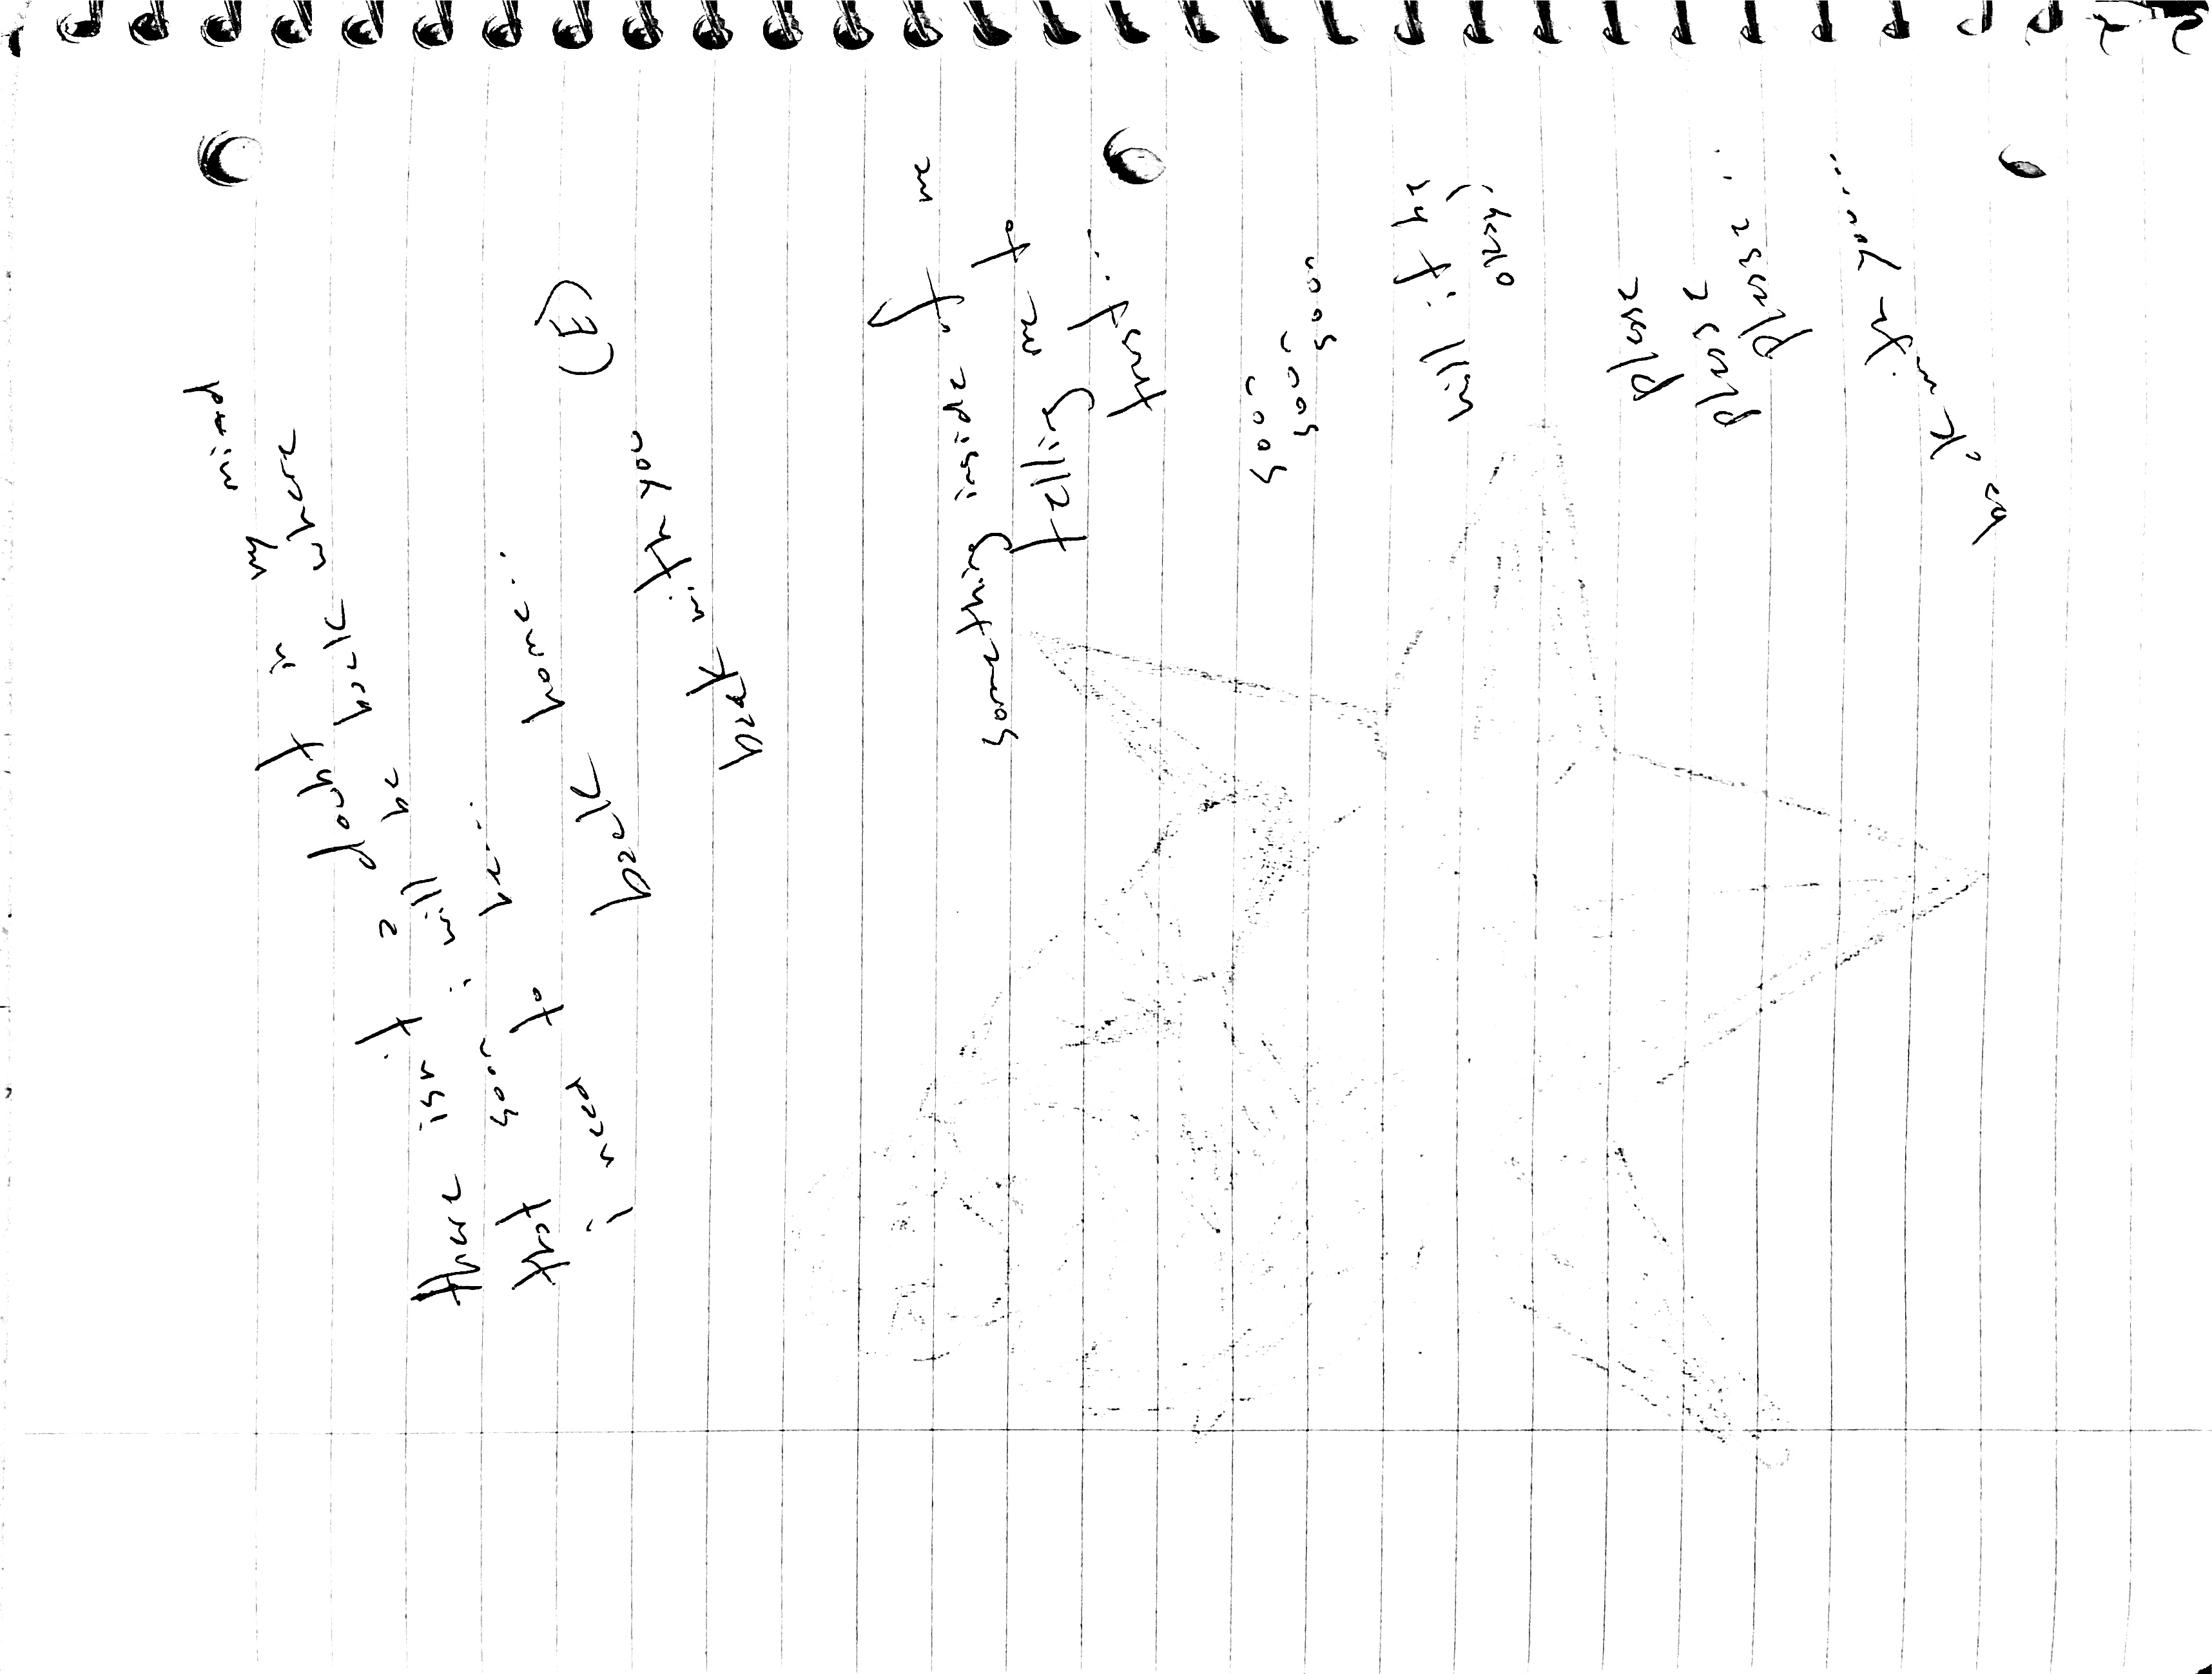 there isn't a doubt in my mind
that soon i will be back where
i need to be... home...
back
back with you
(E)
something inside of me
telling me to
trust...
soon
soon
soon
will it be
okay?
please
please
please...
back with you...